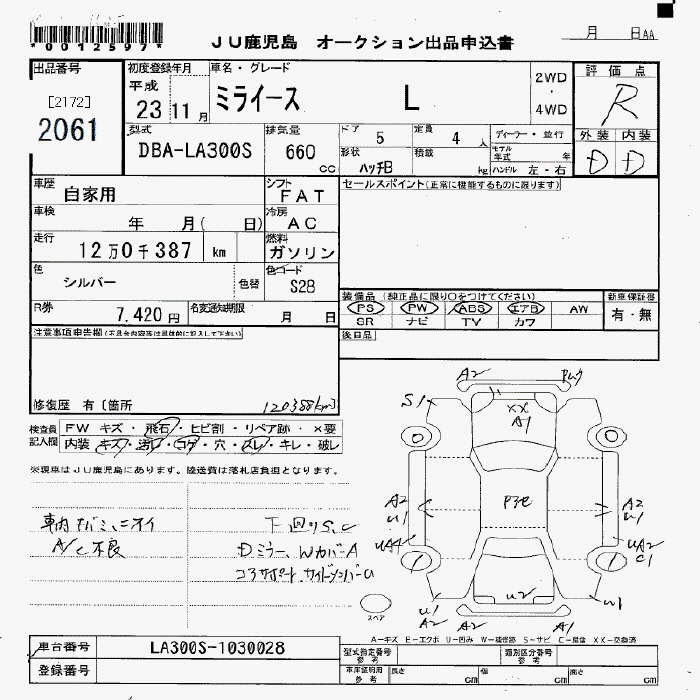 *0012597*
JU鹿児島 オークション出品申込書
月 日AA
出品番号
[2172]
2061
初度登録年月
平成
23 11月
車名・グレード
ミライース L
2WD
・
4WD
評価点
R
外装 内装
D D
型式
DBA-LA300S
排気量
660 cc
ドア 5
定員 4 人
ディーラー・並行
形状 ハッチB
積載 kg
モデル年式 年
ハンドル 左・右
車歴 自家用
シフト FAT
セールスポイント(正常に機能するものに限ります)
車検 年 月( 日)
冷房 AC
走行 12万0千387 km
燃料 ガソリン
色 シルバー 色替
色コード S28
R券 7,420円
名変通知期限 月 日
装備品(純正品に限り○をつけてください)
PS PW ABS エアB AW
SR ナビ TV カワ
新車保証書
有・無
後日品
注意事項申告欄(不具合内容等は具体的に記入して下さい)
修復歴 有〔箇所 120388km〕
検査員記入欄
FW キズ・飛石・ヒビ割・リペア跡・×要
内装・キズ・汚レ・コゲ・穴・スレ・キレ・破レ
※現車はJU鹿児島にあります。陸送費は落札店負担となります。
車内キバミ、ニオイ
A/C不良
下回りS,C
Dミラー、WカバーA
コアサポート、サイドメンバーU
A2
S1
XX
A1
A2
U1
A2
U1
UA4
UA2
C1
U2
U1
A2
A2
A1
U1
スペア
A-キズ E-エクボ U-凹み W-補修跡 S-サビ C-腐蝕 XX-交換済
車台番号 LA300S-1030028
登録番号
型式指定番号
参考
類別区分番号
参考
車庫証明用
参考
長さ cm
幅 cm
高さ cm